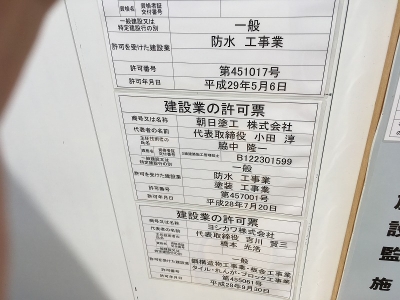 資格名 資格者証交付番号
一般建設又は特定建設行の別 一般
許可を受けた建設業 防水 工事業
許可番号 第451017号
許可年月日 平成29年5月6日
建設業の許可票
商号又は名称 朝日塗工 株式会社
代表者の名前 代表取締役 小田 淳
脇中 隆一
B122301599
一般
許可を受けた建設業 防水 工事業
塗装 工事業
許可番号 第457001号
許可年月日 平成28年7月20日
建設業の許可票
商号又は名称 ヨシカワ株式会社
代表者の名前 代表取締役 吉川 賢三
橋本 光浩
一般
許可を受けた建設業 鋼構造物工事業・板金工事業
タイル・れんが・ブロック工事業
許可番号 第455061号
許可年月日 平成28年9月30日
設
監
施